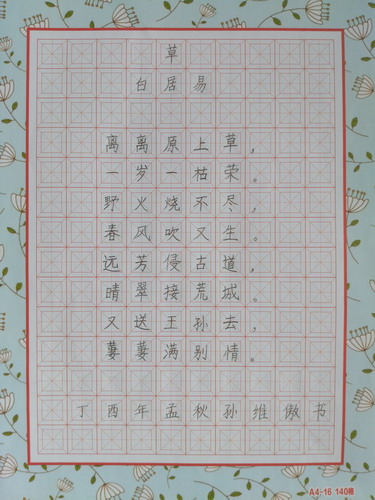 草
白居易
离离原上草,
一岁一枯荣。
野火烧不尽,
春风吹又生。
远芳侵古道,
晴翠接荒城。
又送王孙去,
萋萋满别情。
丁酉年孟秋孙维傲书
A4-16 140格